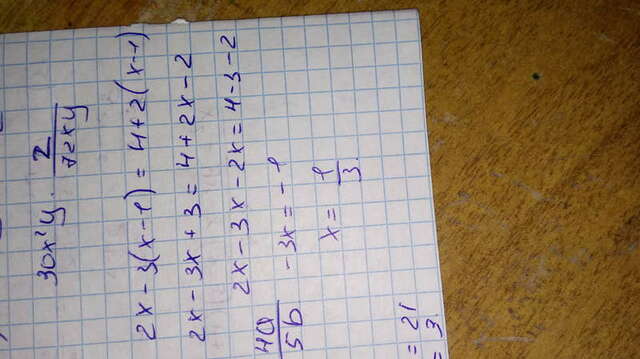 30x²y · 2/72xy
2x - 3(x-1) = 4+2(x-1)
2x - 3x + 3 = 4 + 2x - 2
2x - 3x - 2x = 4-3-2
4a/5b
-3x = -1
x = 1/3
= 21
= 3